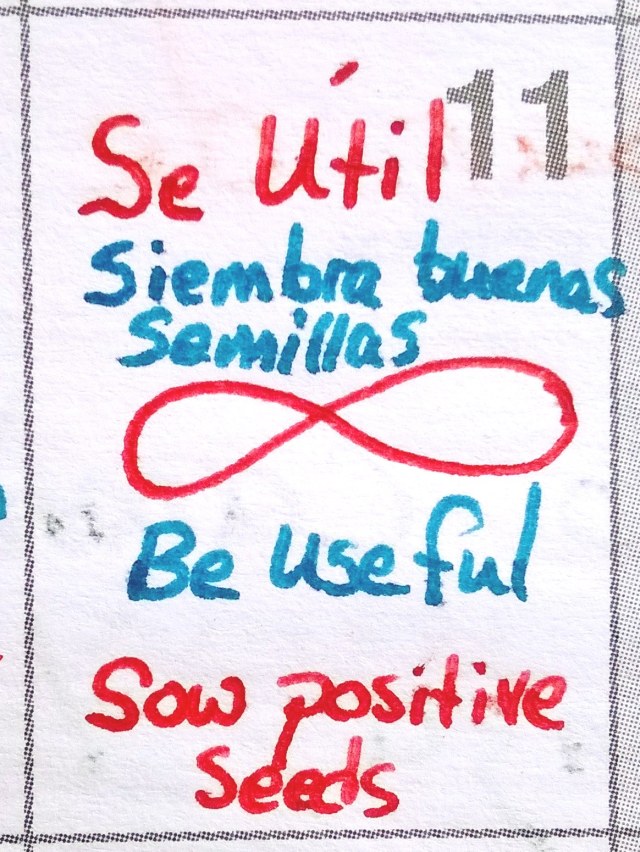 11
Se Útil
Siembra buenas
Semillas
Be useful
Sow positive
Seeds